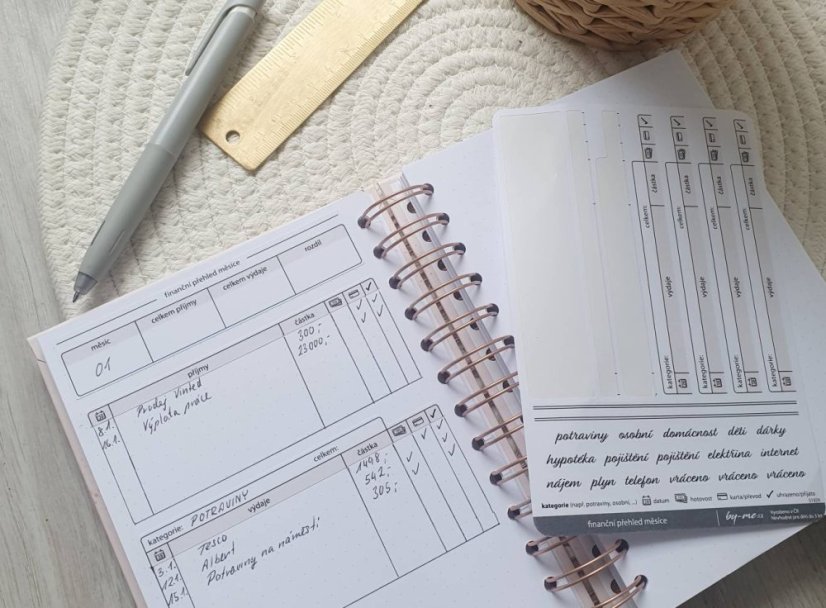 finanční přehled měsíce
měsíc celkem příjmy celkem výdaje rozdíl
01
příjmy částka
8.1. Prodej Vinted 300,-
16.1. Výplata práce 23000,-
kategorie: POTRAVINY celkem:
výdaje částka
3.1. Tesco 1498,-
12.1. Albert 542,-
15.1. Potraviny na náměstí 305,-
kategorie: výdaje celkem: částka
kategorie: výdaje celkem: částka
kategorie: výdaje celkem: částka
kategorie: výdaje celkem: částka
potraviny osobní domácnost děti dárky
hypotéka pojištění pojištění elektřina internet
nájem plyn telefon vráceno vráceno vráceno
kategorie (např. potraviny, osobní, ...) datum hotovost karta/převod uhrazeno/přijato
finanční přehled měsíce by-me.cz Vyrobeno v ČR